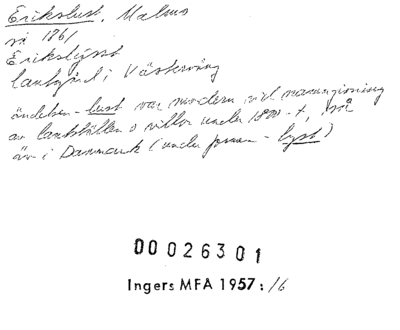 Erikslust, Malmö
på 1861
Erikslyst
lantgård i Västervång
ändelsen -lust var modern vid namngivning
av lantställen o villor under 1800-t,
även i Danmark (under formen -lyst)
00026301
Ingers MFA 1957: 16